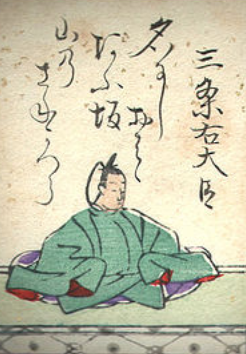 三条右大臣
名にし
おはゝ
あふ坂
山乃
さねかつら